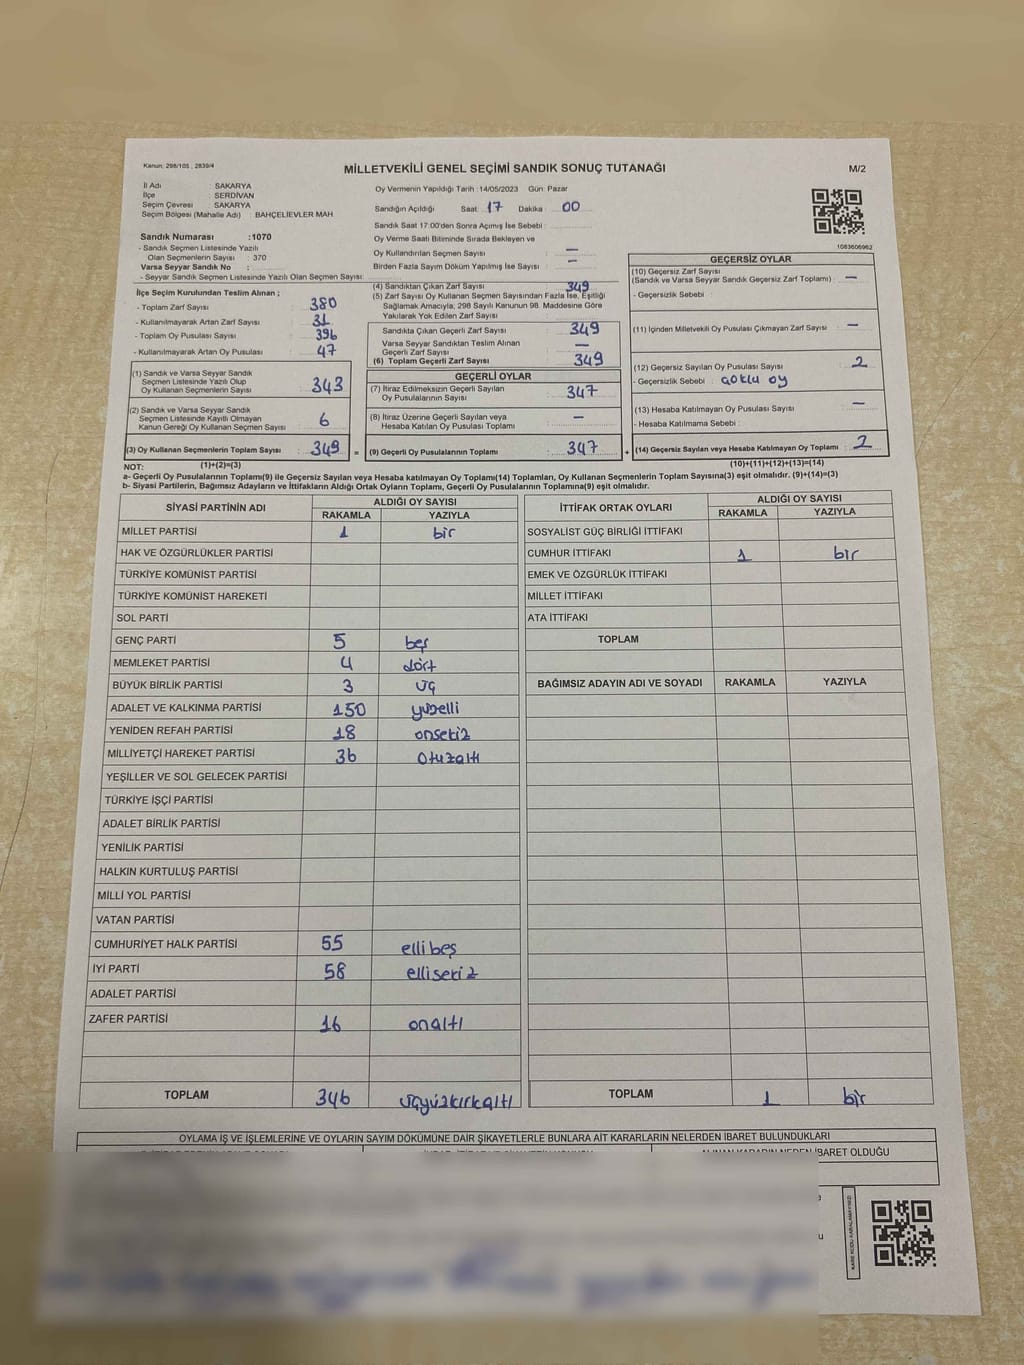 Kanun: 298/105 , 2839/4
MİLLETVEKİLİ GENEL SEÇİMİ SANDIK SONUÇ TUTANAĞI
M/2
İl Adı : SAKARYA
İlçe : SERDİVAN
Seçim Çevresi : SAKARYA
Seçim Bölgesi (Mahalle Adı) : BAHÇELİEVLER MAH
Sandık Numarası :1070
- Sandık Seçmen Listesinde Yazılı
Olan Seçmenlerin Sayısı : 370
Varsa Seyyar Sandık No :
- Seyyar Sandık Seçmen Listesinde Yazılı Olan Seçmen Sayısı:
İlçe Seçim Kurulundan Teslim Alınan ;
- Toplam Zarf Sayısı : 380
- Kullanılmayarak Artan Zarf Sayısı : 31
- Toplam Oy Pusulası Sayısı : 396
- Kullanılmayarak Artan Oy Pusulası : 47
(1) Sandık ve Varsa Seyyar Sandık
Seçmen Listesinde Yazılı Olup
Oy Kullanan Seçmenlerin Sayısı : 343
(2) Sandık ve Varsa Seyyar Sandık
Seçmen Listesinde Kayıtlı Olmayan
Kanun Gereği Oy Kullanan Seçmen Sayısı : 6
(3) Oy Kullanan Seçmenlerin Toplam Sayısı : 349 =
Oy Vermenin Yapıldığı Tarih : 14/05/2023 Gün: Pazar
Sandığın Açıldığı Saat: 17 Dakika : 00
Sandık Saat 17:00'den Sonra Açımış İse Sebebi :
Oy Verme Saati Bitiminde Sırada Bekleyen ve
Oy Kullandırılan Seçmen Sayısı : —
Birden Fazla Sayım Döküm Yapılmış İse Sayısı : —
(4) Sandıktan Çıkan Zarf Sayısı : 349
(5) Zarf Sayısı Oy Kullanan Seçmen Sayısından Fazla İse, Eşitliği
Sağlamak Amacıyla, 298 Sayılı Kanunun 98. Maddesine Göre
Yakılarak Yok Edilen Zarf Sayısı :
Sandıkta Çıkan Geçerli Zarf Sayısı : 349
Varsa Seyyar Sandıktan Teslim Alınan
Geçerli Zarf Sayısı : —
(6) Toplam Geçerli Zarf Sayısı : 349
GEÇERLİ OYLAR
(7) İtiraz Edilmeksizin Geçerli Sayılan
Oy Pusulalarının Sayısı : 347
(8) İtiraz Üzerine Geçerli Sayılan veya
Hesaba Katılan Oy Pusulası Toplamı : —
(9) Geçerli Oy Pusulalarının Toplamı : 347 +
1083606962
GEÇERSİZ OYLAR
(10) Geçersiz Zarf Sayısı
(Sandık ve Varsa Seyyar Sandık Geçersiz Zarf Toplamı) : —
- Geçersizlik Sebebi :
(11) İçinden Milletvekili Oy Pusulası Çıkmayan Zarf Sayısı : —
(12) Geçersiz Sayılan Oy Pusulası Sayısı : 2
- Geçersizlik Sebebi : çoklu oy
(13) Hesaba Katılmayan Oy Pusulası Sayısı : —
- Hesaba Katılmama Sebebi :
(14) Geçersiz Sayılan veya Hesaba Katılmayan Oy Toplamı : 2
NOT: (1)+(2)=(3) (10)+(11)+(12)+(13)=(14)
a- Geçerli Oy Pusulalarının Toplamı(9) ile Geçersiz Sayılan veya Hesaba katılmayan Oy Toplamı(14) Toplamları, Oy Kullanan Seçmenlerin Toplam Sayısına(3) eşit olmalıdır. (9)+(14)=(3)
b- Siyasi Partilerin, Bağımsız Adayların ve İttifakların Aldığı Ortak Oyların Toplamı, Geçerli Oy Pusulalarının Toplamına(9) eşit olmalıdır.
SİYASİ PARTİNİN ADI ALDIĞI OY SAYISI
RAKAMLA YAZIYLA
MİLLET PARTİSİ 1 bir
HAK VE ÖZGÜRLÜKLER PARTİSİ
TÜRKİYE KOMÜNİST PARTİSİ
TÜRKİYE KOMÜNİST HAREKETİ
SOL PARTİ
GENÇ PARTİ 5 beş
MEMLEKET PARTİSİ 4 dört
BÜYÜK BİRLİK PARTİSİ 3 üç
ADALET VE KALKINMA PARTİSİ 150 yüzelli
YENİDEN REFAH PARTİSİ 18 onsekiz
MİLLİYETÇİ HAREKET PARTİSİ 36 otuzaltı
YEŞİLLER VE SOL GELECEK PARTİSİ
TÜRKİYE İŞÇİ PARTİSİ
ADALET BİRLİK PARTİSİ
YENİLİK PARTİSİ
HALKIN KURTULUŞ PARTİSİ
MİLLİ YOL PARTİSİ
VATAN PARTİSİ
CUMHURİYET HALK PARTİSİ 55 ellibeş
İYİ PARTİ 58 ellisekiz
ADALET PARTİSİ
ZAFER PARTİSİ 16 onaltı
TOPLAM 346 üçyüzkırkaltı
İTTİFAK ORTAK OYLARI ALDIĞI OY SAYISI
RAKAMLA YAZIYLA
SOSYALİST GÜÇ BİRLİĞİ İTTİFAKI
CUMHUR İTTİFAKI 1 bir
EMEK VE ÖZGÜRLÜK İTTİFAKI
MİLLET İTTİFAKI
ATA İTTİFAKI
TOPLAM
BAĞIMSIZ ADAYIN ADI VE SOYADI RAKAMLA YAZIYLA
TOPLAM 1 bir
OYLAMA İŞ VE İŞLEMLERİNE VE OYLARIN SAYIM DÖKÜMÜNE DAİR ŞİKAYETLERLE BUNLARA AİT KARARLARIN NELERDEN İBARET BULUNDUKLARI
ALINAN KARARIN NEDEN İBARET OLDUĞU
KARE KODU KARALAMAYINIZ!